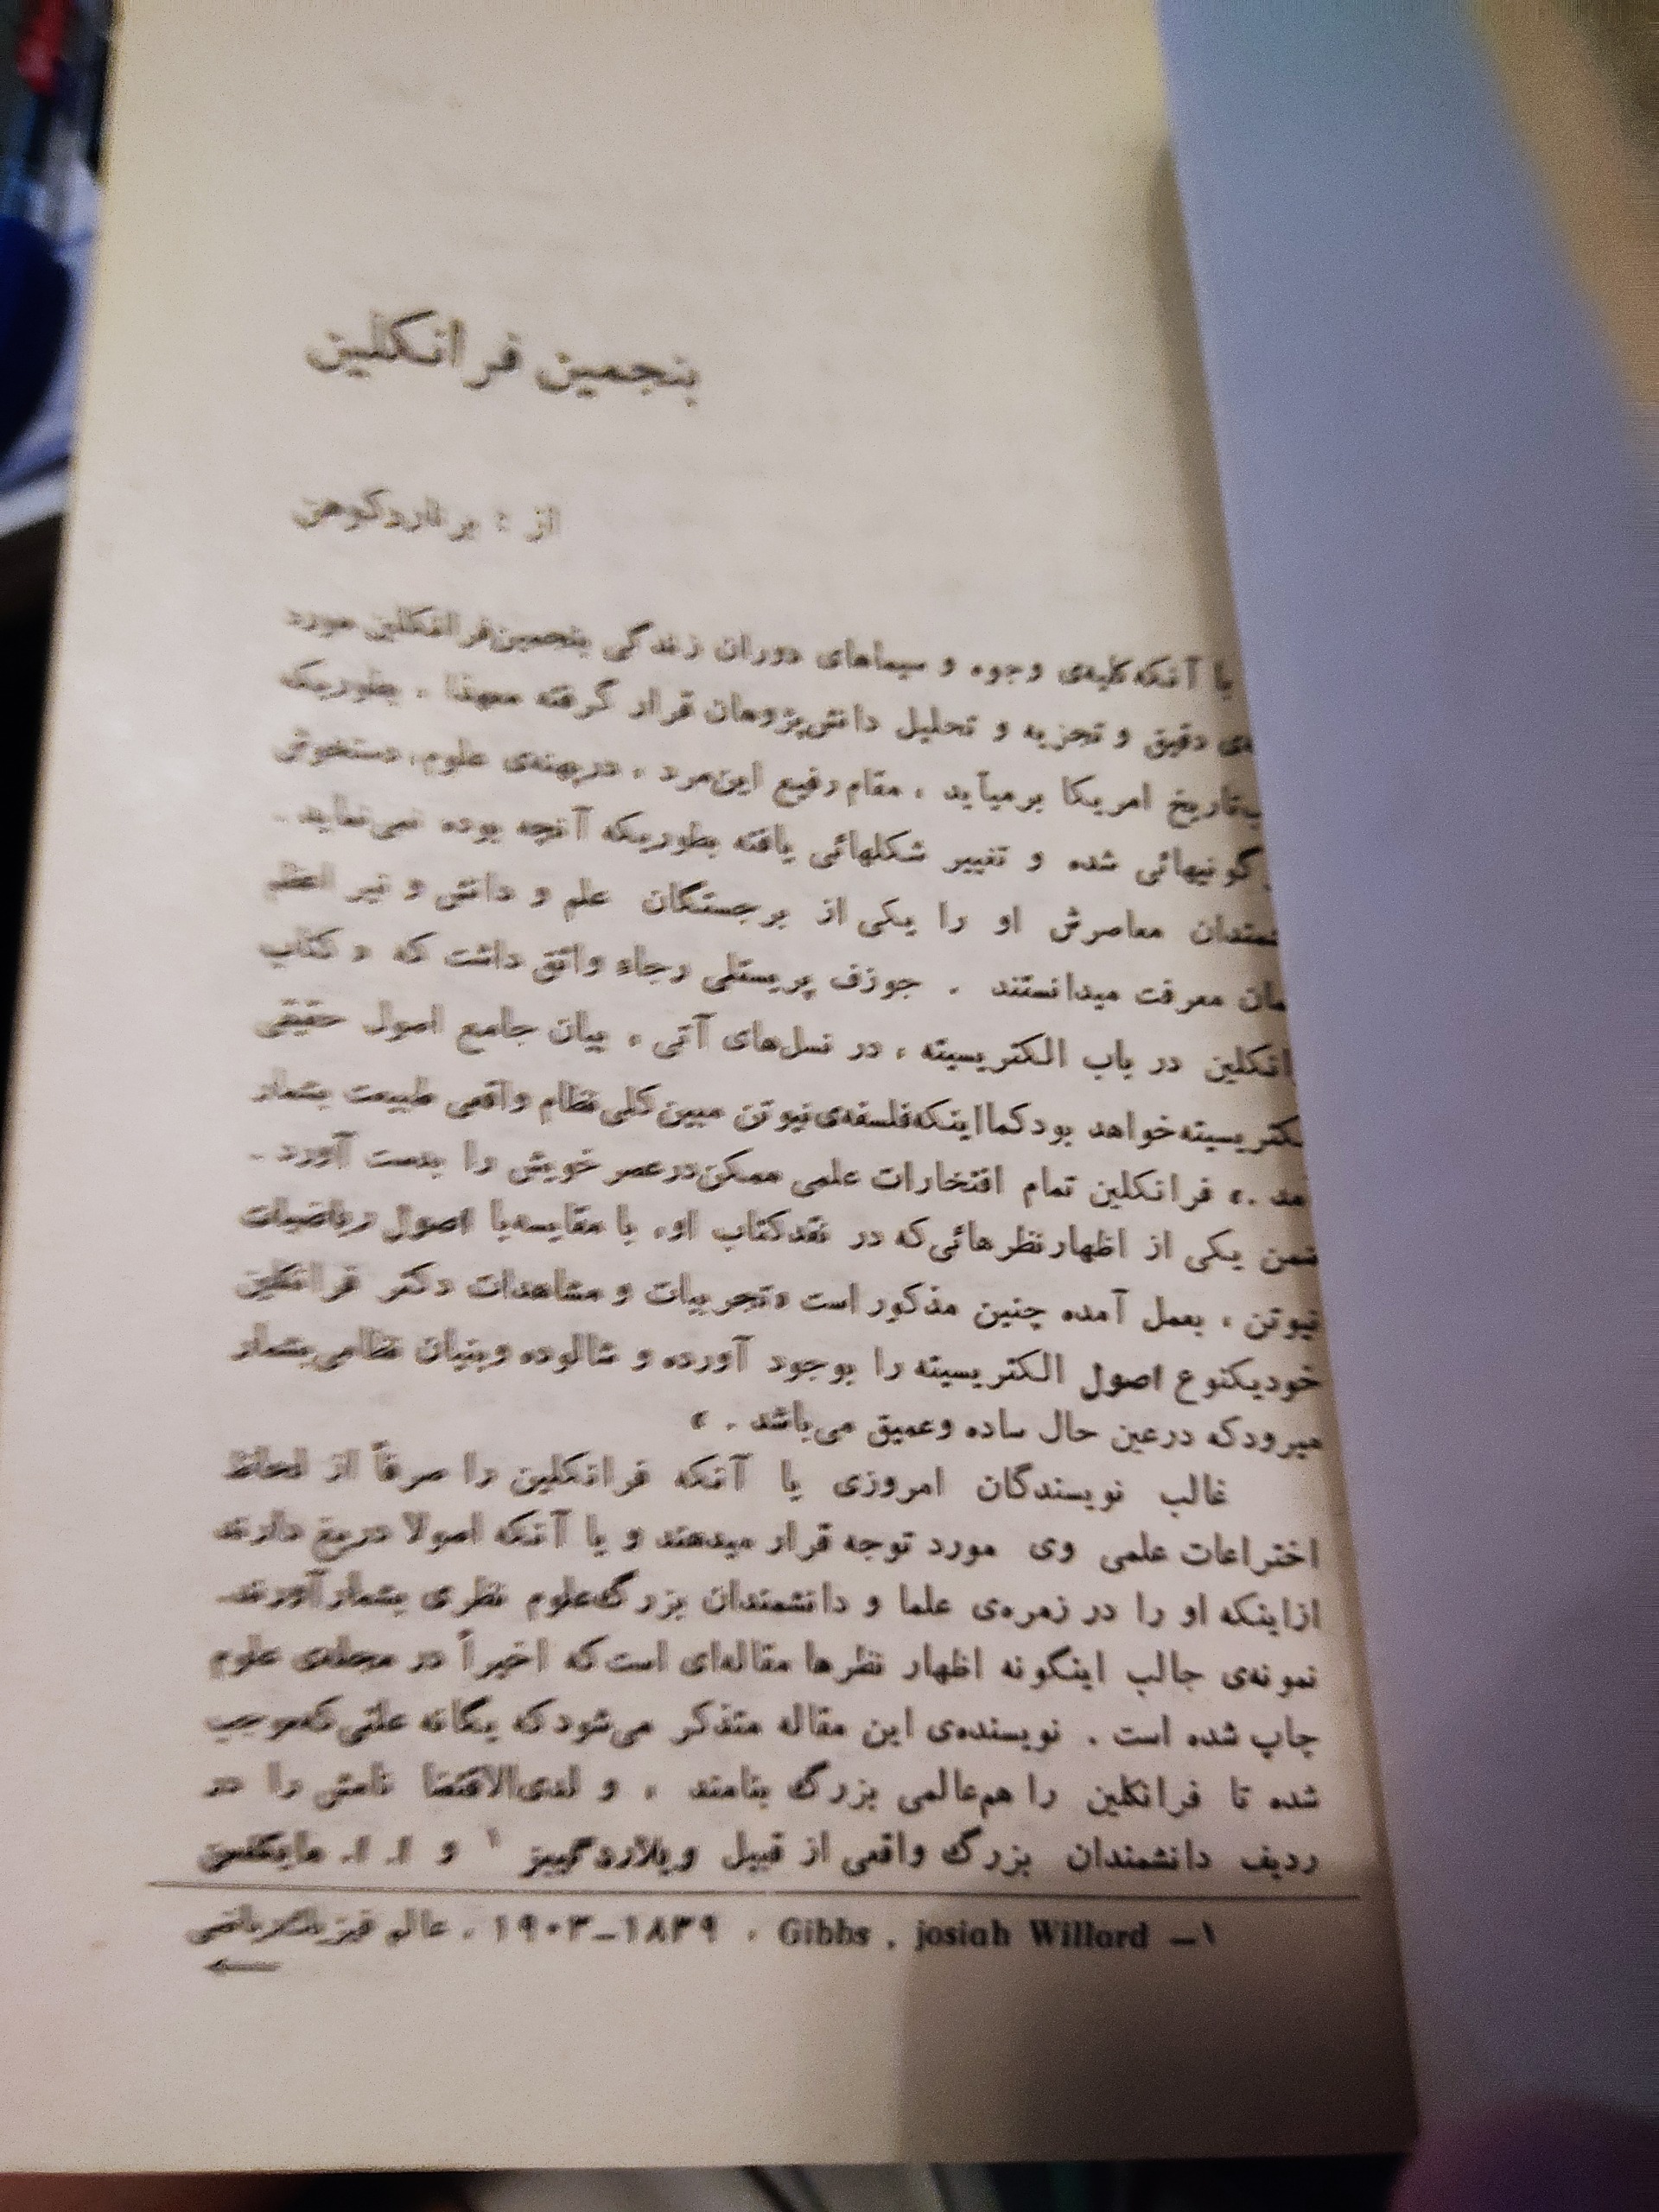 بنجمین فرانکلین
از : برنارد کوهن
با آنکه کلیه‌ی وجوه و سیماهای دوران زندگی بنجمین فرانکلین مورد
دقیق و تجزیه و تحلیل دانش‌پژوهان قرار گرفته معهذا ، بطوریکه
تاریخ امریکا برمیآید ، مقام رفیع این‌مرد ، درپهنه‌ی علوم، دستخوش
گونیهائی شده و تغییر شکلهائی یافته بطوریکه آنچه بوده نمی‌نماید .
معاصرش او را یکی از برجستگان علم و دانش و نیر اعظم
معرفت میدانستند . جوزف پریستلی رجاء واثق داشت که « کتاب
در باب الکتریسیته ، در نسل‌های آتی ، بیان جامع اصول حقیقی
خواهد بود کما اینکه فلسفه‌ی نیوتن مبین کلی نظام واقعی طبیعت بشمار
.» فرانکلین تمام افتخارات علمی ممکن درعصر خویش را بدست آورد .
ضمن یکی از اظهار نظرهائی که در نقد کتاب او، با مقایسه با اصول ریاضیات
نیوتن ، بعمل آمده چنین مذکور است «تجربیات و مشاهدات دکتر فرانکلین
خود یکنوع اصول الکتریسیته را بوجود آورده و شالوده و بنیان نظامی بشمار
میرود که درعین حال ساده و عمیق می‌باشد . »
غالب نویسندگان امروزی یا آنکه فرانکلین را صرفاً از لحاظ
اختراعات علمی وی مورد توجه قرار میدهند و یا آنکه اصولا دریغ دارند
ازاینکه او را در زمره‌ی علما و دانشمندان بزرگ علوم نظری بشمار آورند.
نمونه‌ی جالب اینگونه اظهار نظرها مقاله‌ای است که اخیراً در مجله‌ی علوم
چاپ شده است . نویسنده‌ی این مقاله متذکر می‌شود که یگانه علتی که موجب
شده تا فرانکلین را هم عالمی بزرگ بنامند ، و لدی‌الاقتضا نامش را در
ردیف دانشمندان بزرگ واقعی از قبیل ویلارد گیبز ۱ و ا. ا. مایکلسن
۱ـ Gibbs , josiah Willard ، ۱۸۳۹ـ۱۹۰۳ ، عالم فیزیک ریاضی
←